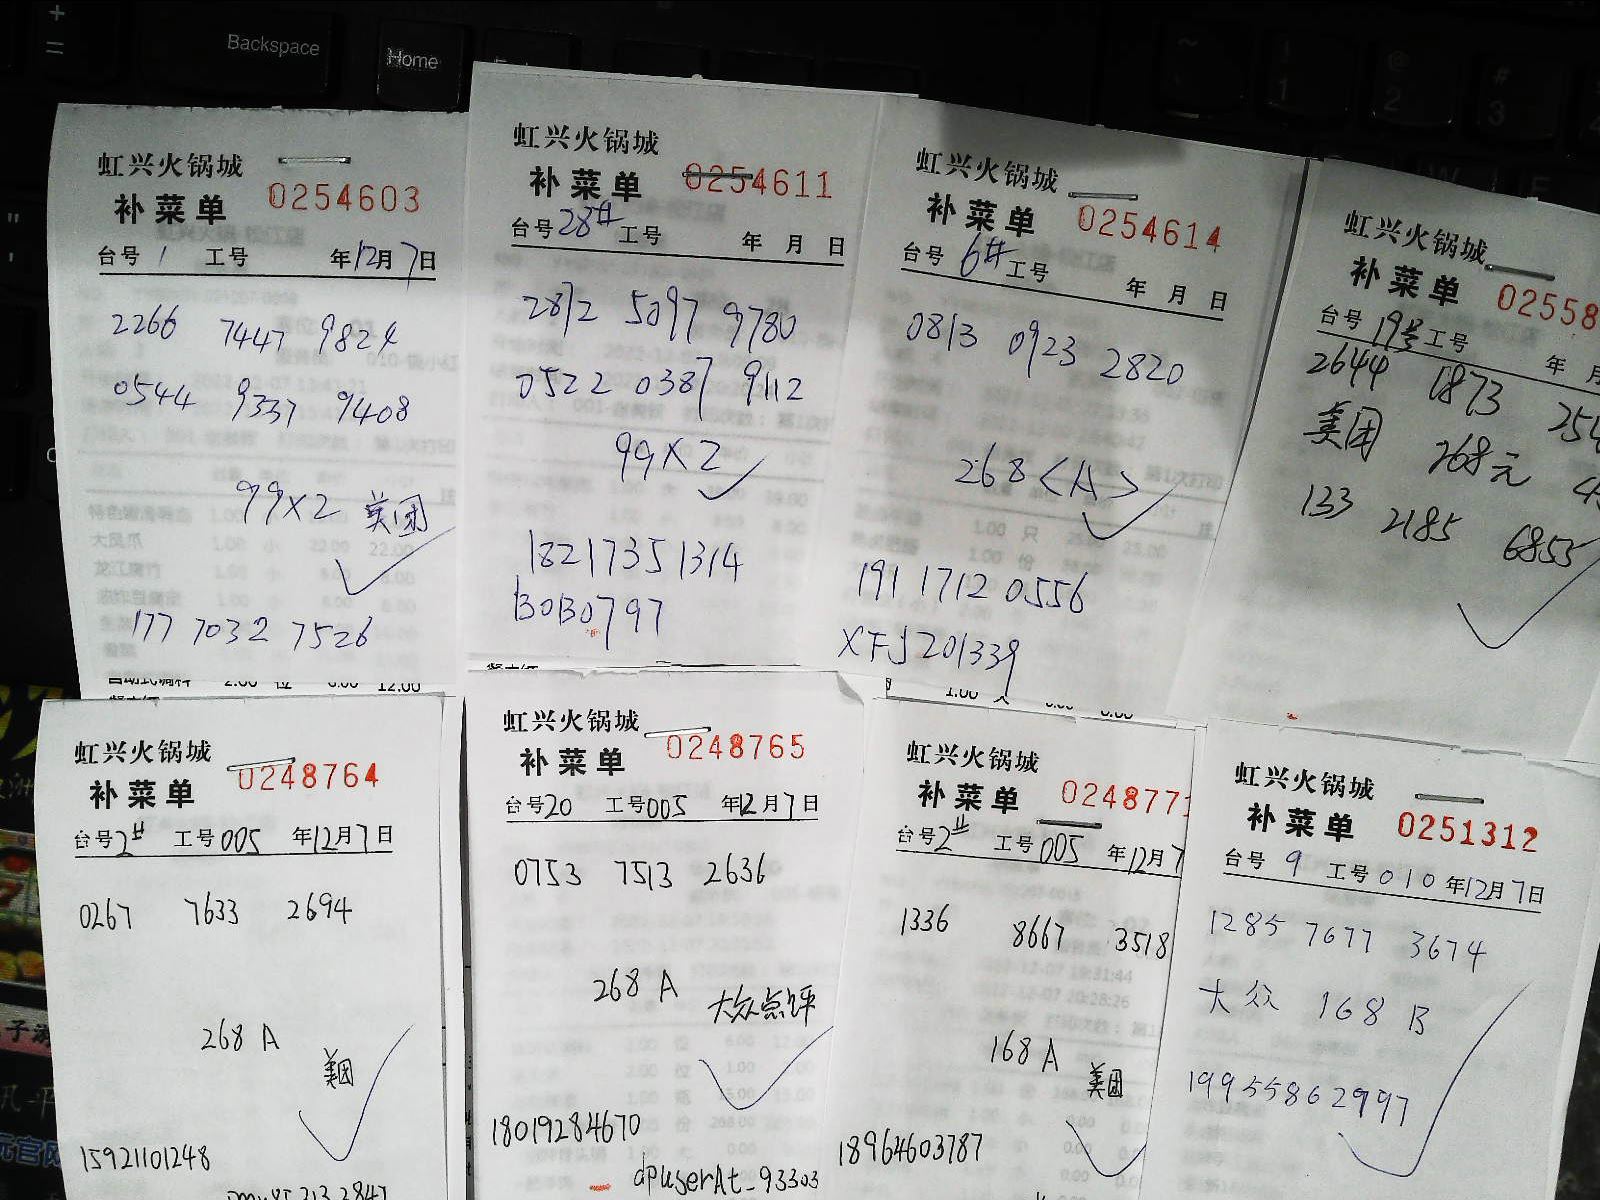 Backspace
Home
虹兴火锅城
补菜单 0254603
台号 1 工号 年12月7日
2266 7447 9824
0544 9337 9408
99X2 美团
177 7032 7526
自助式调料 2.00 位 6.00 12.00
虹兴火锅城
补菜单 0254611
台号28# 工号 年 月 日
2872 5097 9780
0522 0387 9112
99X2
18217351314
BOBO797
虹兴火锅城
补菜单 0254614
台号 6# 工号 年 月 日
0813 0923 2820
268<A>
191 1712 0556
XFJ201339
虹兴火锅城
补菜单 02558
台号 19号 工号 年 月
2644 1873 254
美团 268元
133 2185 6855
虹兴火锅城
补菜单 0248764
台号2# 工号005 年12月7日
0267 7633 2694
268 A
美团
15921101248
虹兴火锅城
补菜单 0248765
台号20 工号005 年12月7日
0753 7513 2636
268 A 大众点评
18019284670
dpuserAt_93303
虹兴火锅城
补菜单 0248771
台号2# 工号005 年12月7
1336 8667 3518
168 A 美团
18964603787
虹兴火锅城
补菜单 0251312
台号 9 工号010 年12月7日
1285 7677 3674
大众 168 B
19955862997